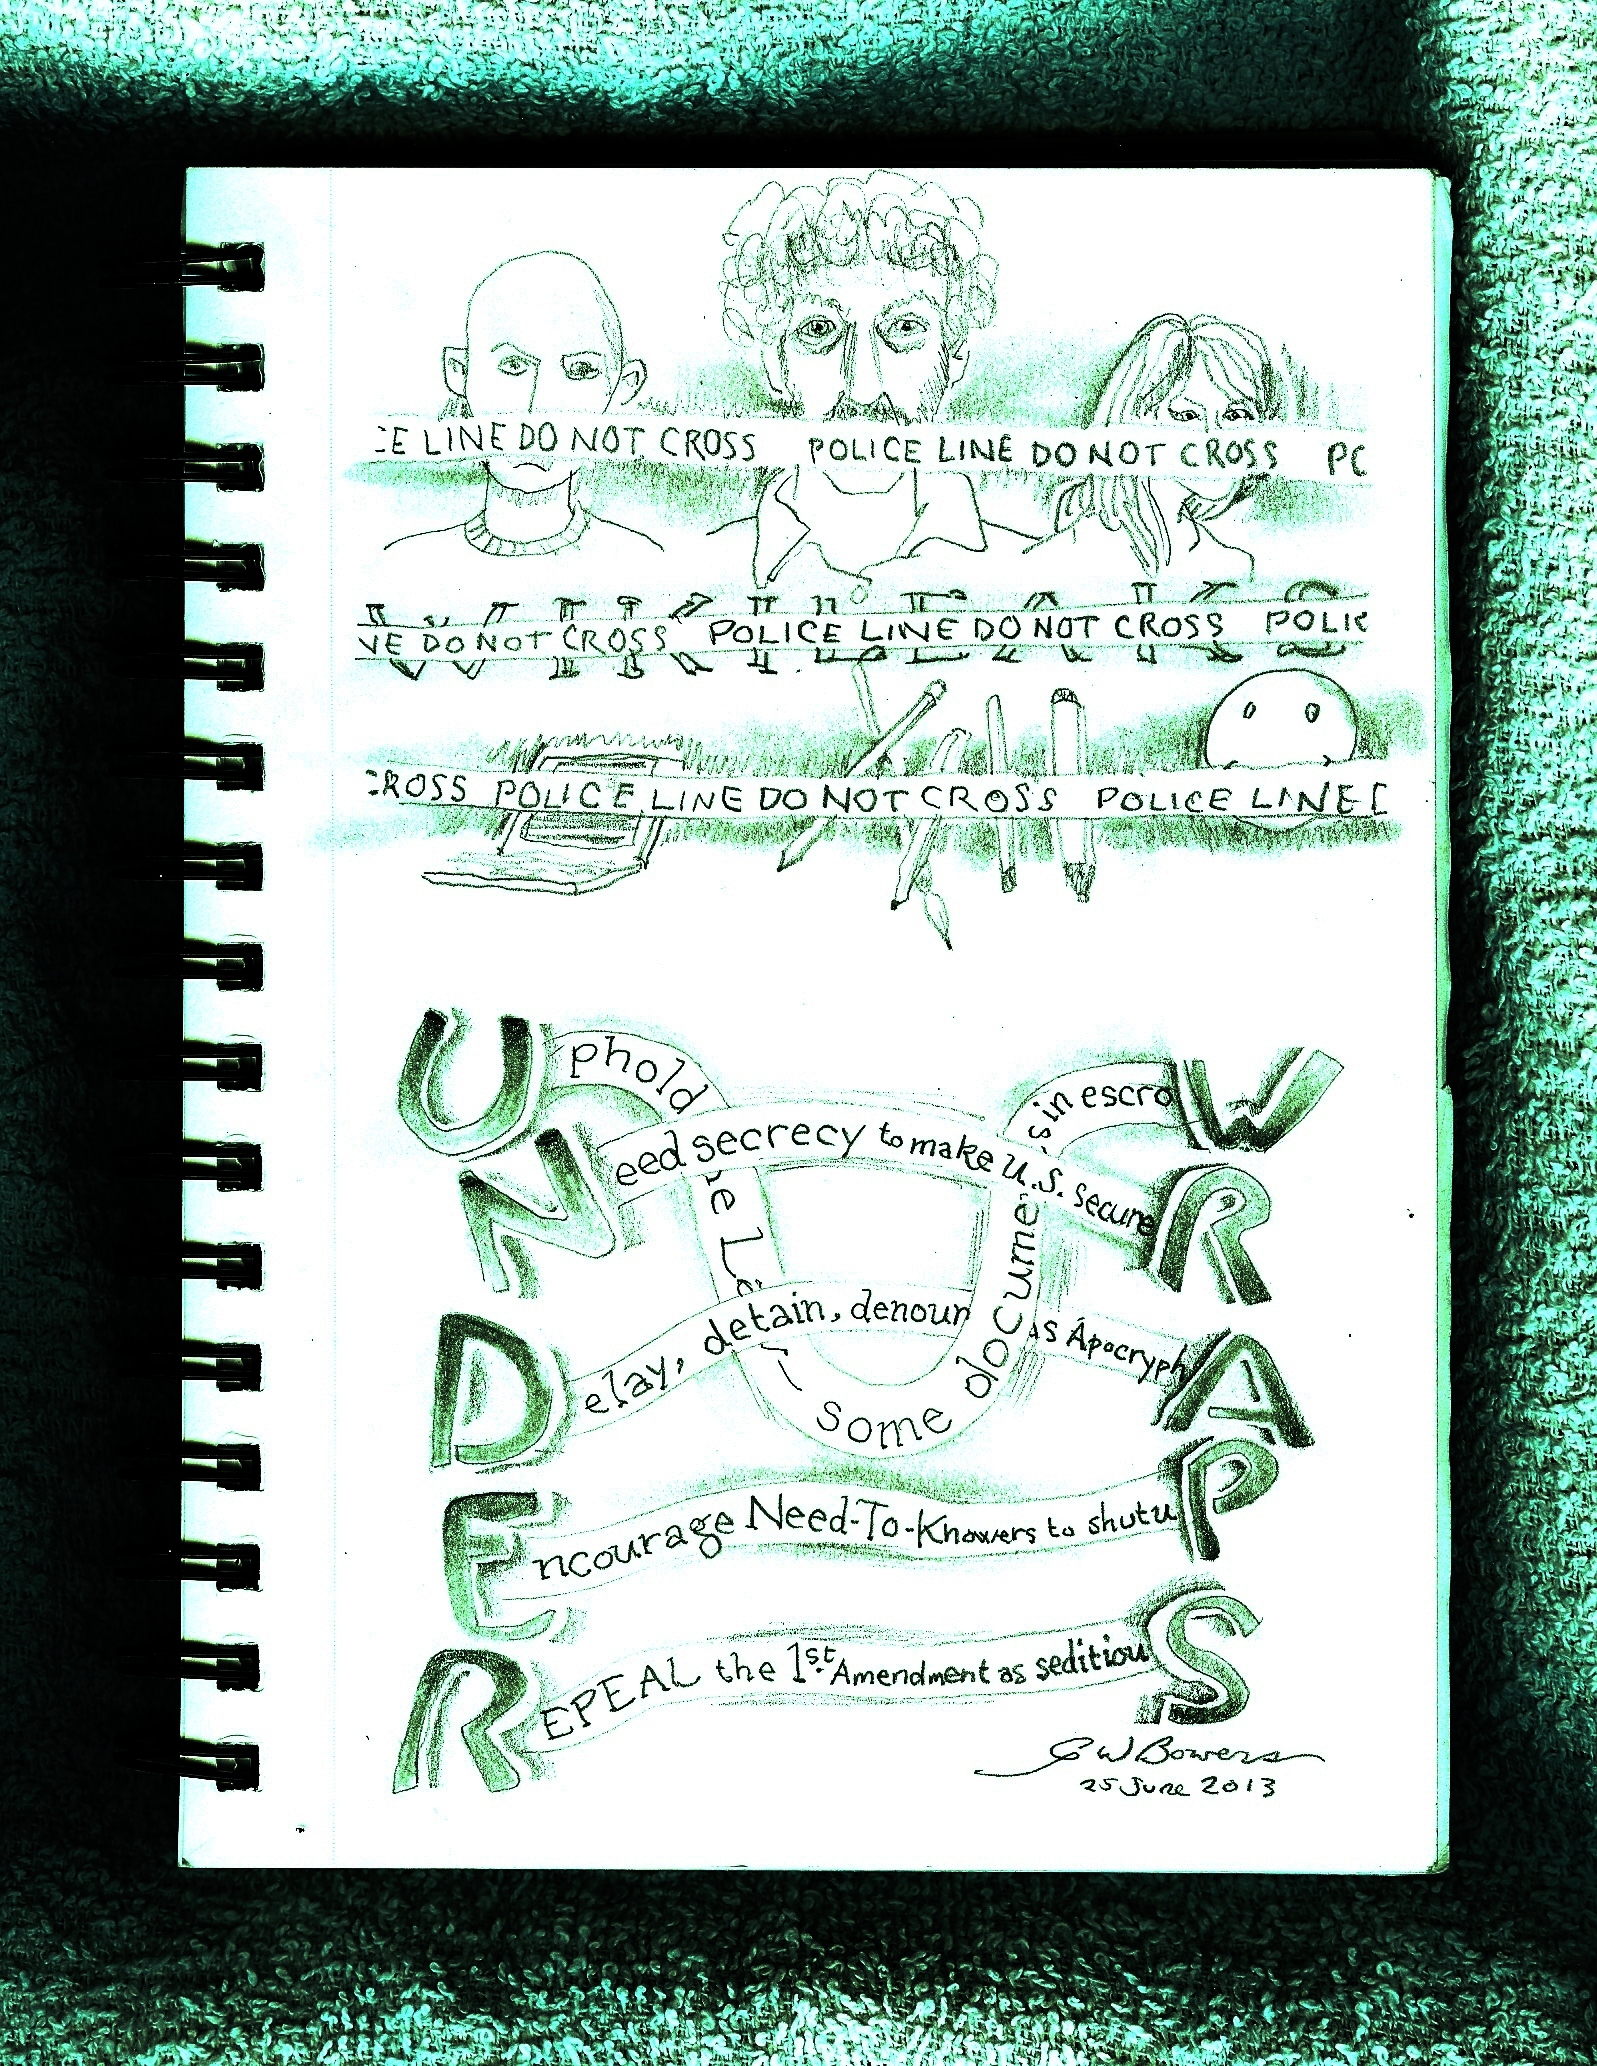 CE LINE DO NOT CROSS POLICE LINE DO NOT CROSS PO
NE DO NOT CROSS POLICE LINE DO NOT CROSS POLIC
CROSS POLICE LINE DO NOT CROSS POLICE LINE D
Uphold he La — some documen s in escroW
Need secrecy to make U.S. secureR
Delay, detain, denoun as ApocryphA
Encourage Need-To-Knowers to shutuP
REPEAL the 1st Amendment as seditiouS
GW Bowers
25 June 2013